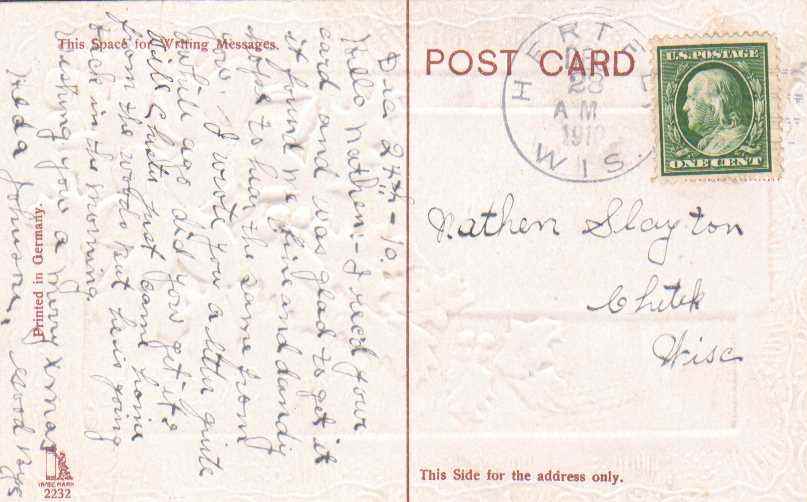 This Space for Writing Messages.
Dec 24th - 10.
Hello Nathen:- I rec'd your
card and was glad to get it
it found me fine and dandy
hope to hear the same from
you. I wrote you a letter quite
a while ago did you get it
Will just came home
from the woods but he is going
back in the morning
Wishing you a Merry Xmas
Good bye
Johnson.
Printed in Germany.
2232
POST CARD
HERTEL
DEC
28
AM
1910
WIS.
U.S. POSTAGE
ONE CENT
Nathen Slayton
Chetek
Wisc
This Side for the address only.